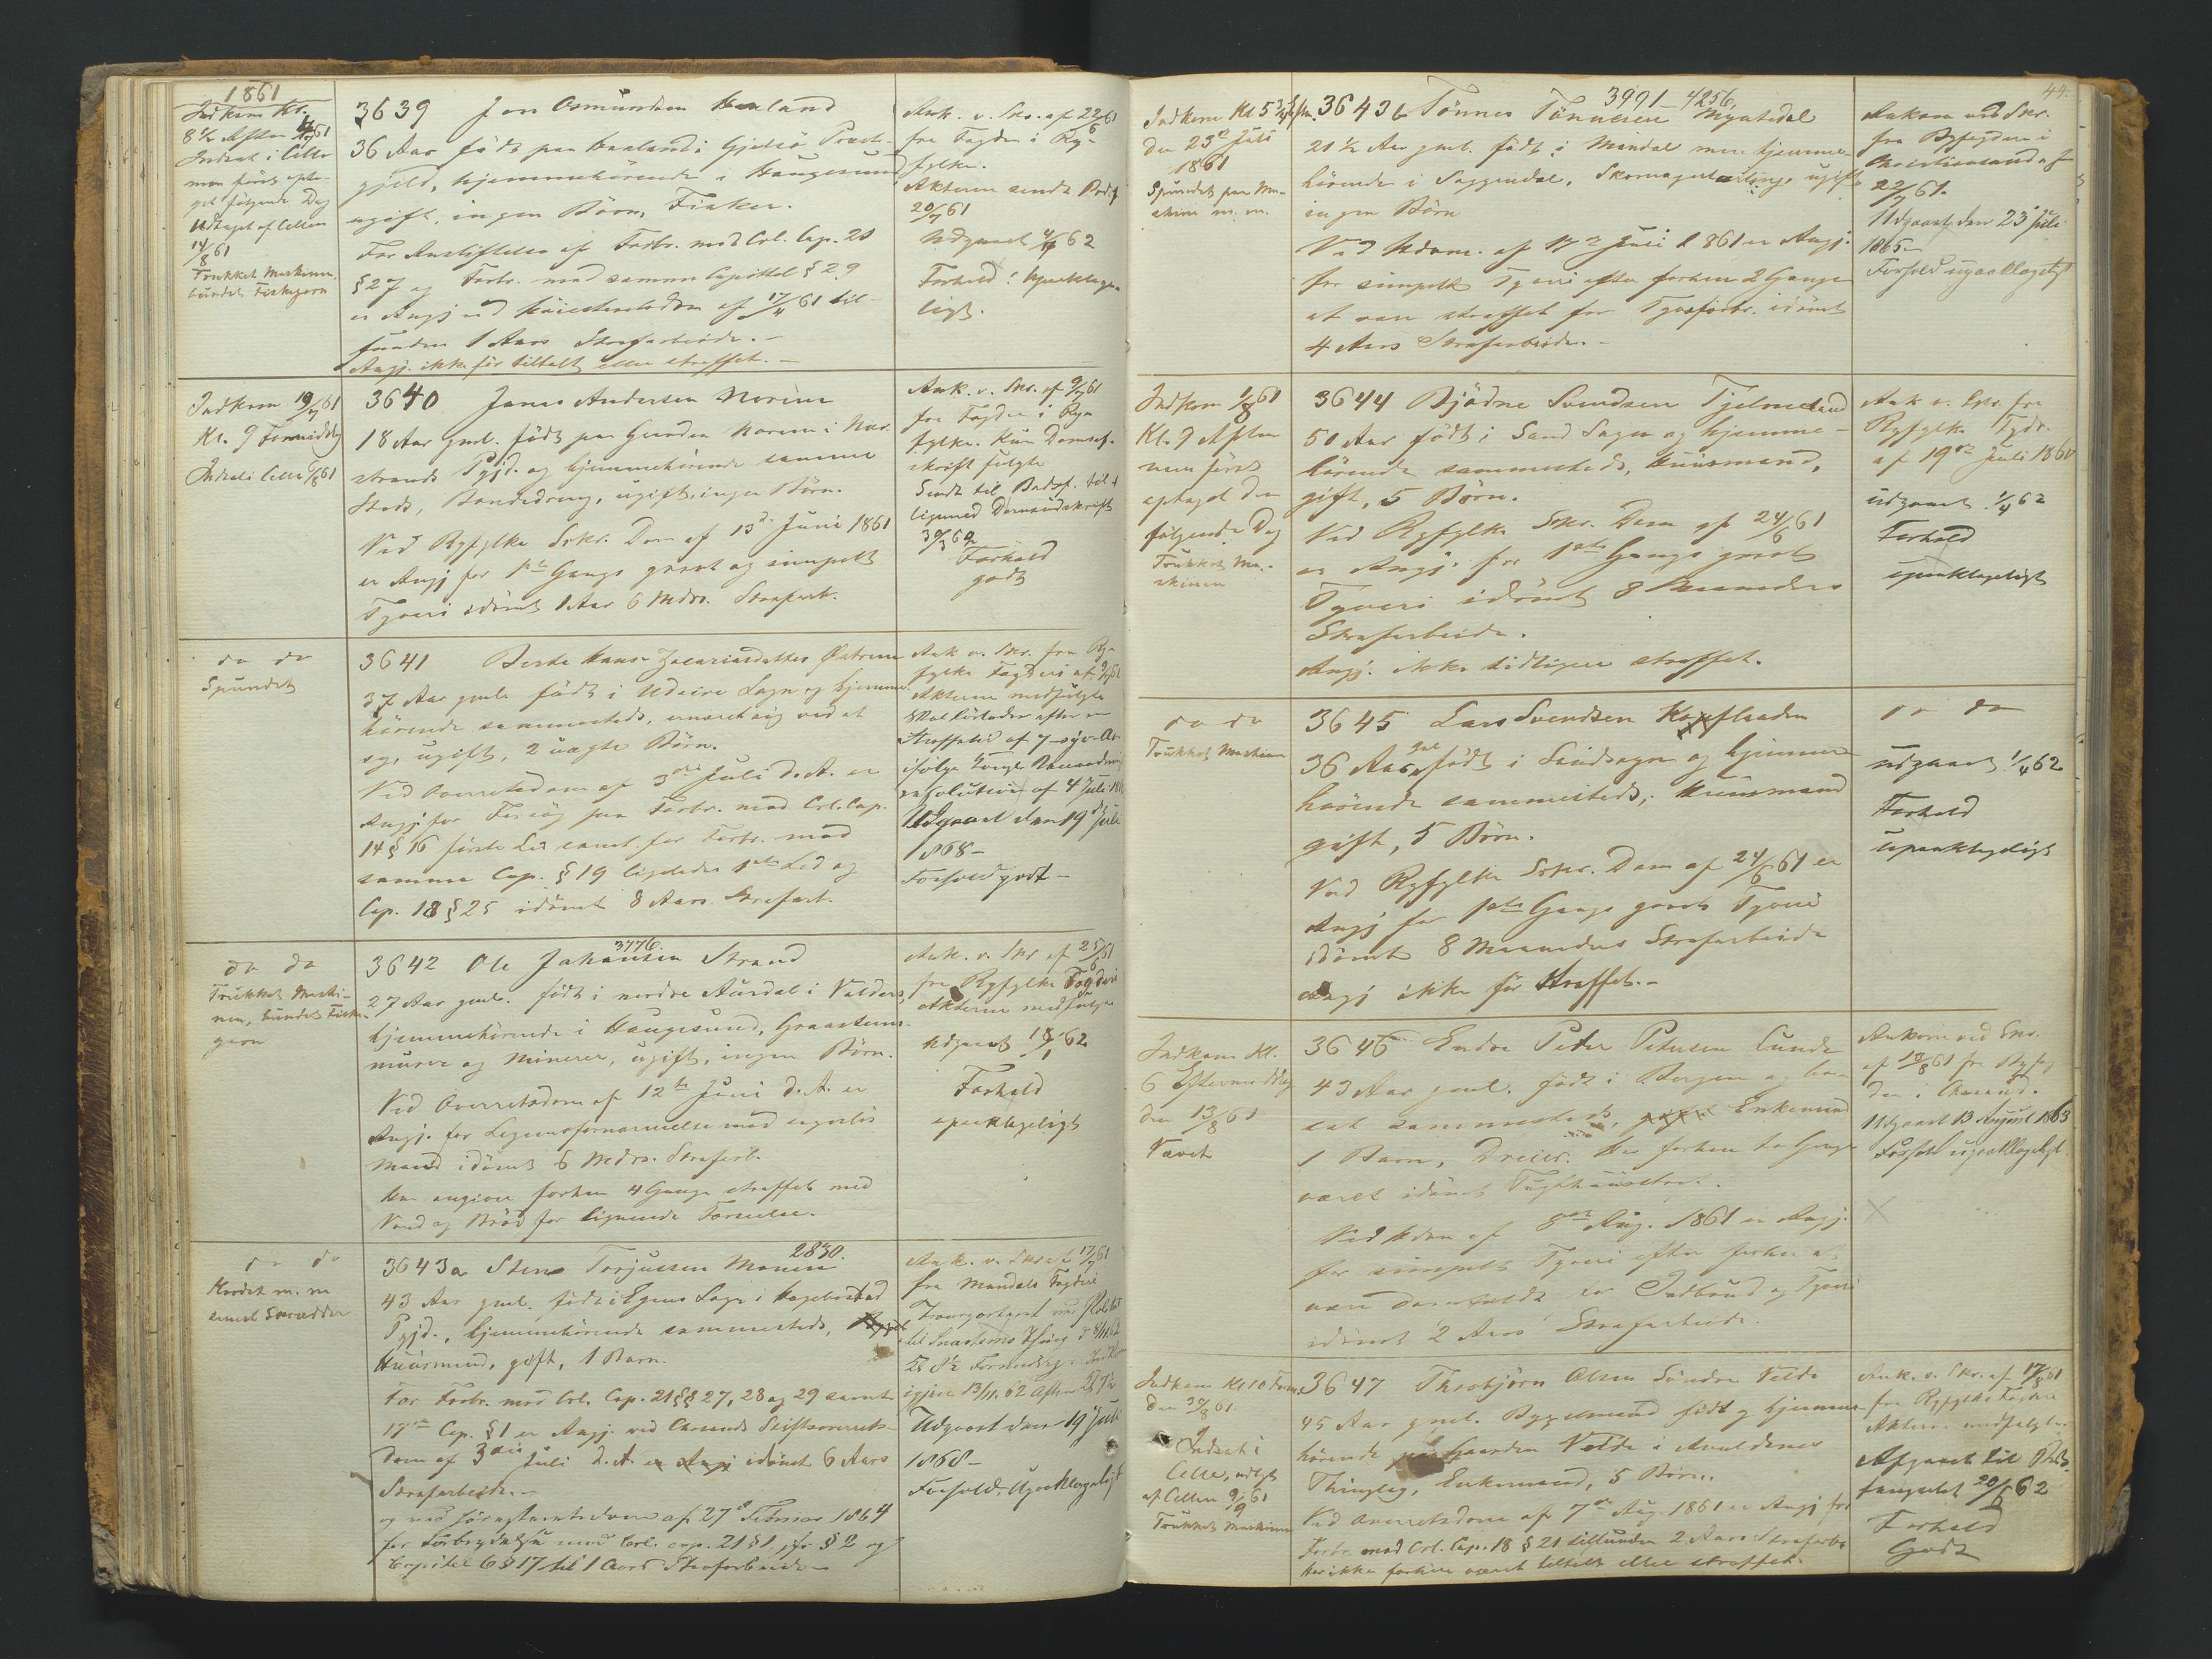 1861
Indkom Kl.
8½ Aften 4/7 61
Indsat i Celle
men først opta-
get følgende Dag
Udtaget af Cellen
14/8 61
Trukket Maskinen,
bundet Fiskegarn
3639 Jon Osmundsen Haaland
36 Aar født paa Haaland i Gjelsø Præst-
gjeld, hjemmehørende i Haugesund
ugift, ingen Børn, Fisker.
For Anstiftelse af Forbr. mod Crl. Cap. 21
§ 27 og Forbr. mod samme Capittel § 29
er Angj ved Høiesteretsdom af 17/4 61 til-
funden 1 Aars Strafarbeide. -
Angj. ikke før tiltalt eller straffet. -
Ank. v. Skr. af 22/6 61
fra Fogden i Ry-
fylke.
Akterne sendt
20/7 61
Udgaaet 4/7 62
Forhold: Upaaklage-
ligt.
Indkom 19/7 61
Kl. 9 Formiddag
Indsat i Celle
3640 Jonas Andersen Noreim
18 Aar gml. født paa Gaarden Noreim i Nær-
strands Pgjd. og hjemmehørende samme
Steds, Bondedreng, ugift, ingen Børn.
Ved Ryfylke Sskr. Dom af 13de Juni 1861
er Angj for 1ste Gangs grovt og simpelt
Tyveri idømt 1 Aar 6 Mdrs. Strafarb.
Ank. v. Skr. af 9/7 61
fra Fogden i Ry-
fylke. Kun Domsaf-
skrift fulgte
Sendt til
ligemed Domsudskrift
30/3 62
Forhold
godt
do do
Spundet
3641 Berte Hanse Zacariasdatter Østrem
37 Aar gmle født i Udeire Sogn og hjemme-
hørende sammesteds, ernæret sig ved at
sy, ugift, 2 uægte Børn.
Ved Overretsdom af 3die Juli d. A. er
Angj for Forsøg paa Forbr. mod Crl. Cap.
14 § 16 første Led samt for Forbr. mod
samme Cap. § 19 ligeledes 1ste Led og
Cap. 18 § 25 idømt 8 Aars Strafarb.
Ank v. Skr. fra Ry-
fylke Fogderi af
Akterne medfulgte
Skal løslades efter en
Straffetid af 7 - syv - Aar
ifølge Kongl Benaadnings
resolution af 4 Juli
Udgaaet den 19de Juli
1868 -
Forhold godt -
do do
Trukket Maski-
nen, bundet Fiske-
garn
3776.
3642 Ole Johansen Strand
27 Aar gml. født i nordre Aurdal i Valders,
hjemmehørende i Haugesund, Graasteens-
murer og Minerer, ugift, ingen Børn.
Ved Overretsdom af 12te Juni d. A. er
Angj. for Legemsfornærmelse mod
Mand idømt 6 Mdrs. Strafarb.
Har angiven forhen 4 Gange straffet med
Vand og Brød for lignende Forseelse.
Ank. v. Skr af 25/6 61
fra Ryfylke Fogderi
Akterne medfulgte
Udgaaet 18/1 62
Forhold
upaaklageligt
do do
Kardet m. m
samt Skrædder
2830.
3643a Sten Torjussen Monen
43 Aar gml. født i Egens Sogn i Hægebostad
Pgjd., hjemmehørende sammesteds,
Huusmand, gift, 1 Barn.
For Forbr. mod Crl. Cap. 21 §§ 27, 28 og 29 samt
17de Cap. § 1 er Angj. ved Chrsands Stiftsoverrets-
dom af 3die Juli d. A. er Angj idømt 6 Aars
Strafarbeide. -
og ved af 27de Februar 1864
for Forbrydelse mod Crl. cap. 21 § 1, jfr § 2 og
Capitel 6 § 17 til 1 Aars Strafarbeide -
Ank. v. Skr af 17/7 61
fra Mandals Fogderi
Transporteret
Kl 8½ Formiddag.
igjen 13/11. 62 Aften
Udgaaet den 19 Juli
1868 -
Forhold, Upaaklageligt
44.
Indkom Kl 5¾ Eftm.
den 23de Juli
1861
Spundet paa Ma-
skine m. m.
3991 - 4256.
3643b Tønnes Tønnesen Mydtedal
21½ Aar gml. født i Mandal men hjemme-
hørende i Soggendal, Skomagerlærling, ugift
ingen Børn
Ved Udom. af 17de Juli 1861 er Angj.
for simpelt Tyveri efter forhen 2 Gange
at være straffet for Tyvsforbr. idømt
4 Aars Strafarbeide. -
Ankom ved Skr.
fra Byfogden i
Christiansand af
22/7 61.
Udgaaet den 23de Juli
1865 -
Forhold upaaklageligt
Indkom 1/8 61
Kl. 9 Aften
men først
optaget den
følgende Dag
Trukket Ma-
skinen
3644 Bjødne Svendsen Tjelmeland
50 Aar født i Sand Sogn og hjemme-
hørende sammesteds, Huusmand,
gift, 5 Børn.
Ved Ryfylke Sskr. Dom af 24/6 61
er Angj. for 1ste Gangs grovt
Tyveri idømt 8 Maaneders
Strafarbeide.
Angj. ikke tidligere straffet.
Ank v. Skr. fra
Ryfylke Fgdr.
af 19de Juli 1861
udgaaet 1/4 62
Forhold
upaaklageligt
do do
Trukket Maskinen
3645 Lars Svendsen Kopflaaden
36 Aar gml født i Sandsogn og hjemme-
hørende sammesteds, Huusmand
gift, 5 Børn.
Ved Ryfylke Sskr. Dom af 24/6 61 er
Angj for 1ste Gangs grovt Tyveri
idømt 8 Maaneders Strafarbeide
Angj ikke før straffet. -
do do
udgaaet 1/4 62
Forhold
upaaklageligt
Indkom Kl.
6 Eftermiddag
den 13/8 61
Vævet
3646 Endre Peder Petersen Lunde
43 Aar gml. født i Bergen og bo-
sat sammesteds, gift Enkemand
1 Barn, Dreier. Har forhen to Gange
været idømt Tugthuusstraf.
Ved Udom af 8de Aug. 1861 er Angj.
for simpelt Tyveri efter forhen at
være domfældt for Indbrud og Tyveri
idømt 2 Aars Strafarbeide.
Ankom ved Skr.
af 13/8 61 fra Byfog-
den i Chrsand.
Udgaaet 13 August 1863
Forhold upaaklageligt.
Indkom Kl 10 Form.
den 30/8 61.
Indsat i
Celle, udtgt
af Cellen 9/9 61
Trukket Maskinen
3647 Thorbjørn Olsen Søndre Velde
45 Aar gml. Bygselmand født og hjemme-
hørende paa Gaarden Velde i Avaldsnes
Thinglag, Enkemand, 5 Børn.
Ved Overretsdom af 7de Aug. 1861 er Angj for
Forbr. mod Crl. Cap. 18 § 21 tilfunden 2 Aars Strafarbe
Har ikke forhen været tiltalt eller straffet.
Ank. v. Skr. af 17/8 61
fra Ryfylke Fogderi
Akterne medfulgte.
Afgaaet til
fængselet 20/6 62
Forhold
Godt